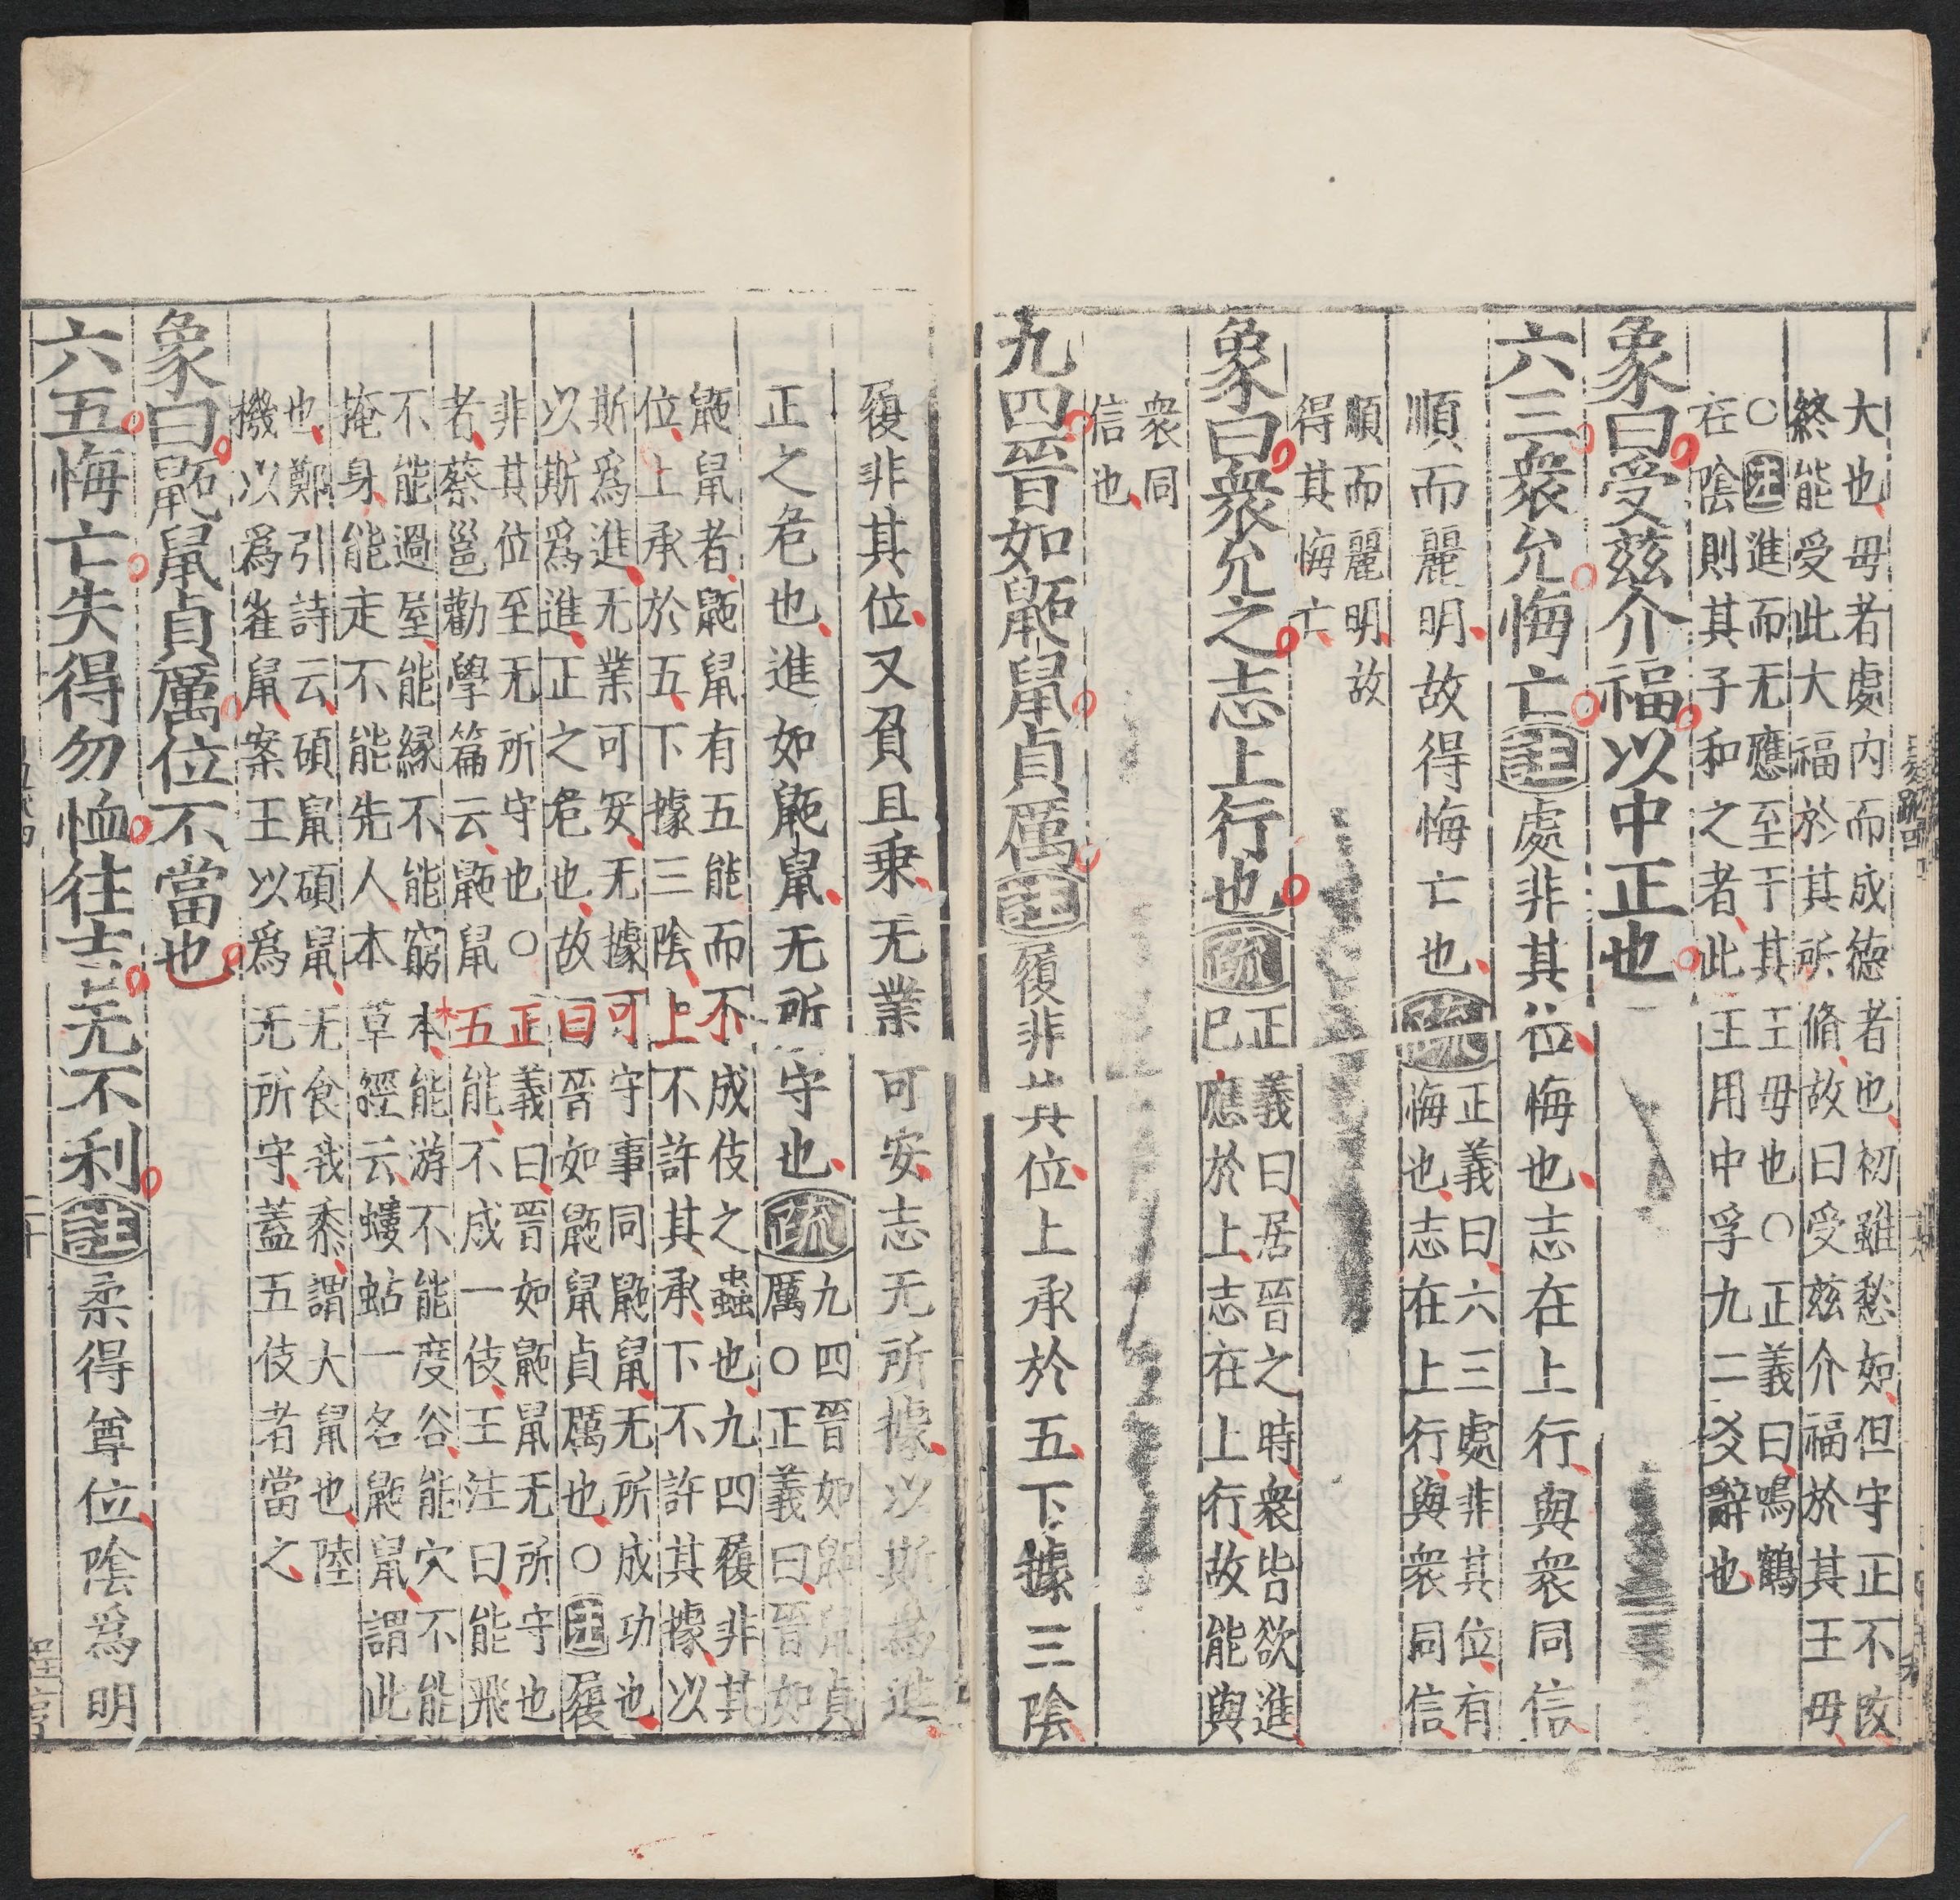 大也毋者處内而成德者也初雖愁如但守正不改
終能受此大福於其所脩故曰受兹介福於其王毋
○注進而无應至于其王毋也○正義曰鳴鶴
在陰則其子和之者此王用中孚九二爻辭也
象曰受兹介福以中正也
六三衆允悔亡註處非其位悔也志在上行與衆同信
順而麗明故得悔亡也疏正義曰六三處非其位有
悔也志在上行與衆同信
順而麗明故
得其悔亡
象曰衆允之志上行也疏正義曰居晉之時衆皆欲進
已應於上志在上行故能與
衆同
信也
九四晉如鼫鼠貞厲註履非其位上承於五下據三陰
履非其位又負且乗无業可安志无所據以斯爲進
正之危也進如鼫鼠无所守也疏九四晉如鼫鼠貞
厲○正義曰晉如
鼫鼠者鼫鼠有五能而不成伎之蟲也九四履非其
位上承於五下據三陰上不許其承下不許其據以
斯爲進无業可安无據可守事同鼫鼠无所成功也
以斯爲進正之危也故曰晉如鼫鼠貞厲也○注履
非其位至无所守也○正義曰晉如鼫鼠无所守也
者蔡邕勸學篇云鼫鼠五能不成一伎王注曰能飛
不能過屋能緣不能窮本能游不能度谷能穴不能
掩身能走不能先人本草經云螻蛄一名鼫鼠謂此
也鄭引詩云碩鼠碩鼠无食我黍謂大鼠也陸
機以爲雀鼠案王以爲无所守蓋五伎者當之
象曰鼫鼠貞厲位不當也
六五悔亡失得勿恤往吉无不利註柔得尊位陰爲明